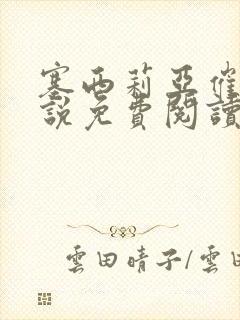 塞西莉亞催
說免費閱讀
雲田晴子/雲田